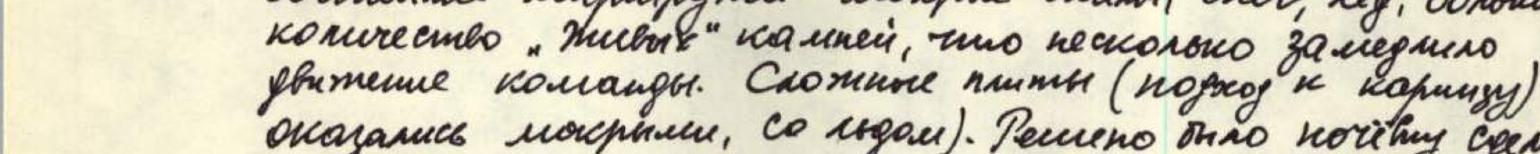 снег, лёд,
количество „живых“ камней, что несколько замедлило
движение команды. Сложные плиты (подход к карнизу)
оказались мокрыми, со льдом). Решено было ночёвку